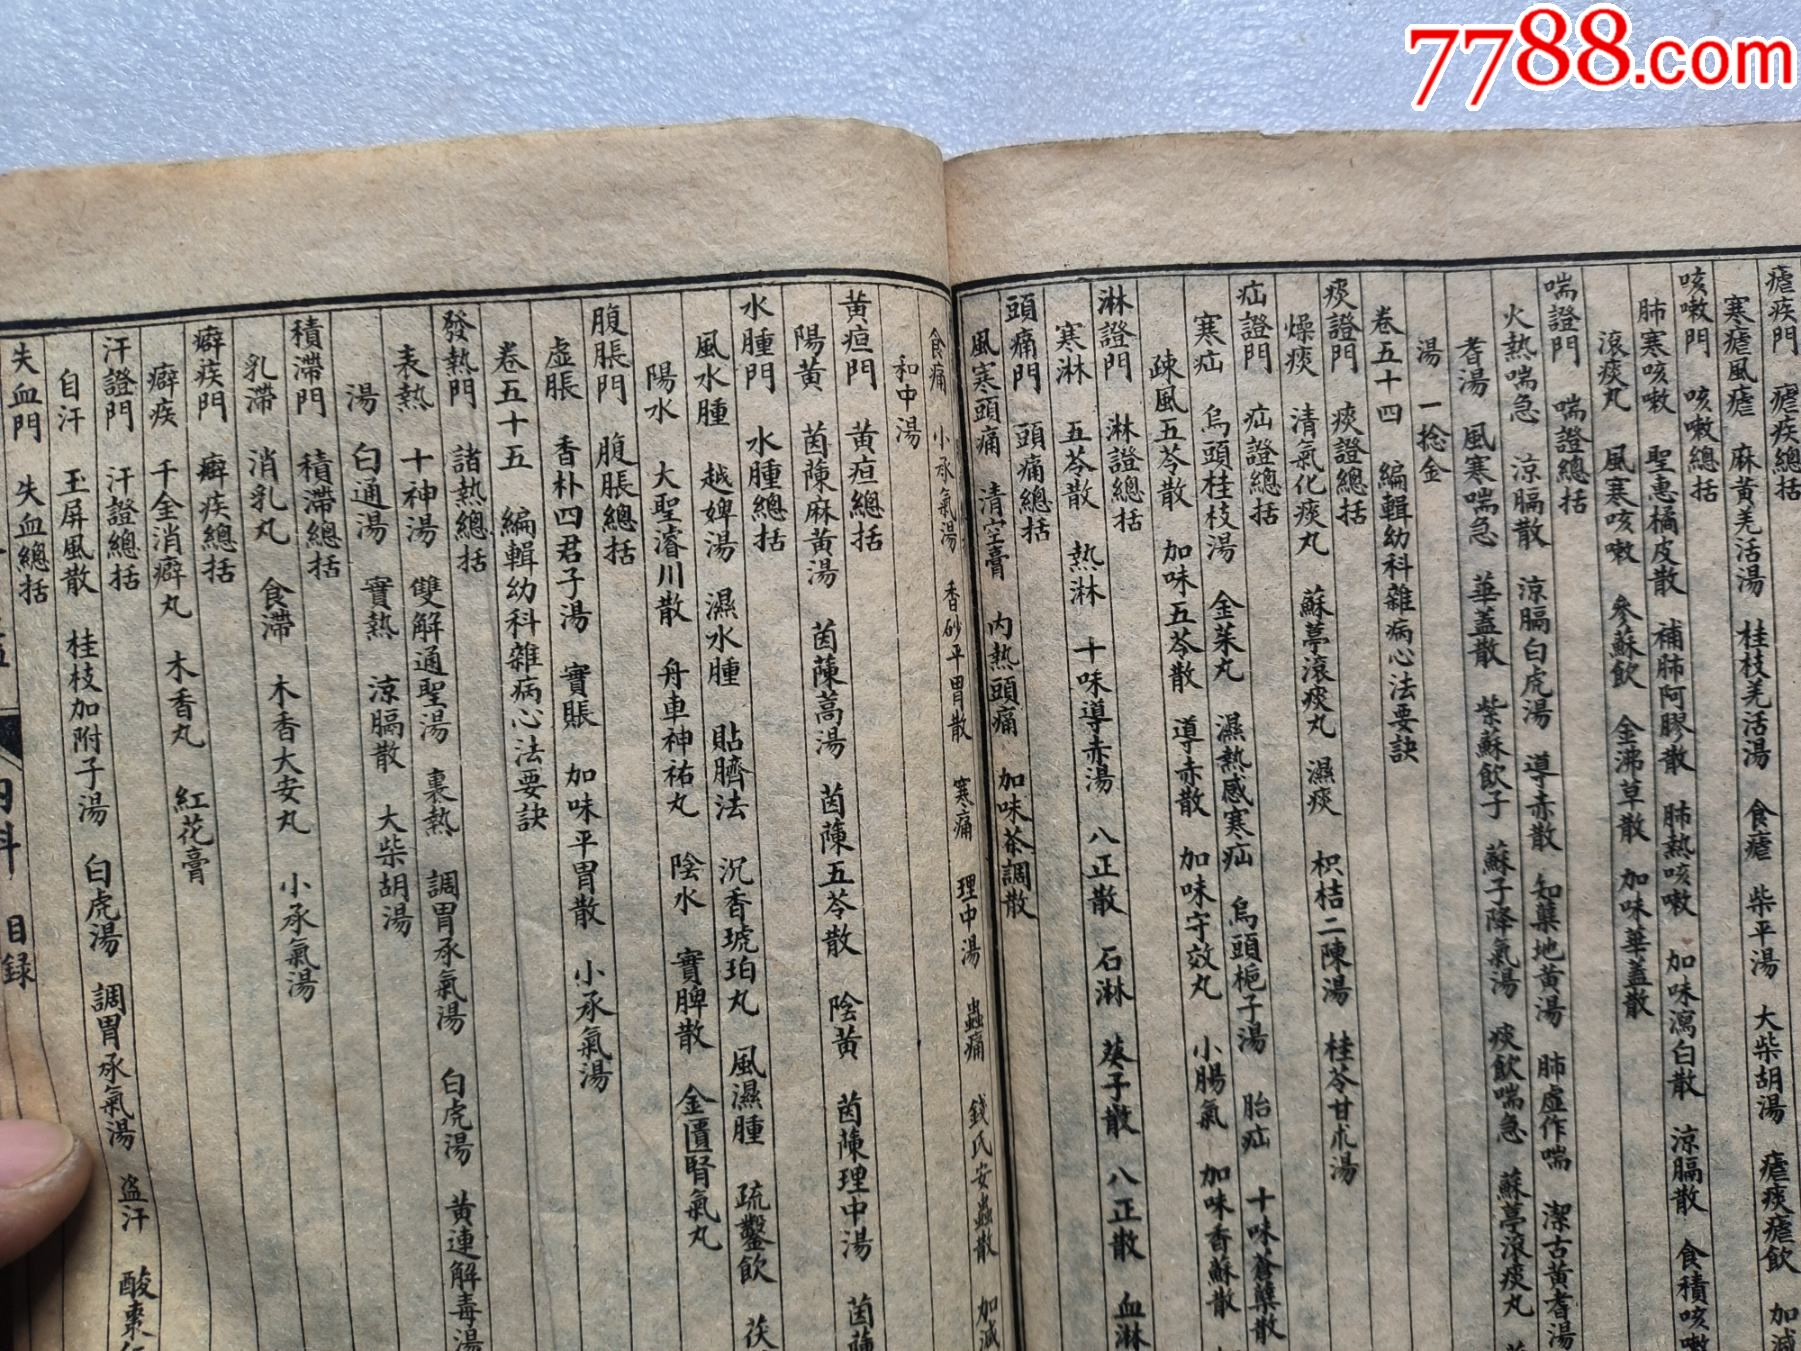 7788.com
瘧疾門 瘧疾總括
寒瘧風瘧 麻黃羌活湯 桂枝羌活湯 食瘧 柴平湯 大柴胡湯 瘧痰瘧飲 加減
咳嗽門 咳嗽總括
肺寒咳嗽 聖惠橘皮散 補肺阿膠散 肺熱咳嗽 加味瀉白散 涼膈散 食積咳嗽
滾痰丸 風寒咳嗽 參蘇飲 金沸草散 加味華蓋散
喘證門 喘證總括
火熱喘急 涼膈散 涼膈白虎湯 導赤散 知蘗地黃湯 肺虛作喘 潔古黃耆湯
耆湯 風寒喘急 華蓋散 紫蘇飲子 蘇子降氣湯 痰飲喘急 蘇葶滾痰丸
湯 一捻金
卷五十四 編輯幼科雜病心法要訣
痰證門 痰證總括
燥痰 清氣化痰丸 蘇葶滾痰丸 濕痰 枳桔二陳湯 桂苓甘朮湯
疝證門 疝證總括
寒疝 烏頭桂枝湯 金茱丸 濕熱感寒疝 烏頭梔子湯 胎疝 十味蒼蘗散
疎風五苓散 加味五苓散 導赤散 加味守效丸 小腸氣 加味香蘇散
淋證門 淋證總括
寒淋 五苓散 熱淋 十味導赤湯 八正散 石淋 葵子散 八正散 血淋
頭痛門 頭痛總括
風寒頭痛 清空膏 內熱頭痛 加味茶調散
食痛 小承氣湯 香砂平胃散 寒痛 理中湯 蟲痛 錢氏安蟲散 加減
和中湯
黃疸門 黃疸總括
陽黃 茵蔯麻黃湯 茵蔯蒿湯 茵蔯五苓散 陰黃 茵蔯理中湯 茵蔯
水腫門 水腫總括
風水腫 越婢湯 濕水腫 貼臍法 沉香琥珀丸 風濕腫 疏鑿飲 茯
陽水 大聖濬川散 舟車神祐丸 陰水 實脾散 金匱腎氣丸
腹脹門 腹脹總括
虛脹 香朴四君子湯 實脹 加味平胃散 小承氣湯
卷五十五 編輯幼科雜病心法要訣
發熱門 諸熱總括
表熱 十神湯 雙解通聖湯 裏熱 調胃承氣湯 白虎湯 黃連解毒湯
湯 白通湯 實熱 涼膈散 大柴胡湯
積滯門 積滯總括
乳滯 消乳丸 食滯 木香大安丸 小承氣湯
癖疾門 癖疾總括
癖疾 千金消癖丸 木香丸 紅花膏
汗證門 汗證總括
自汗 玉屏風散 桂枝加附子湯 白虎湯 調胃承氣湯 盗汗 酸棗仁
失血門 失血總括
內科 目錄